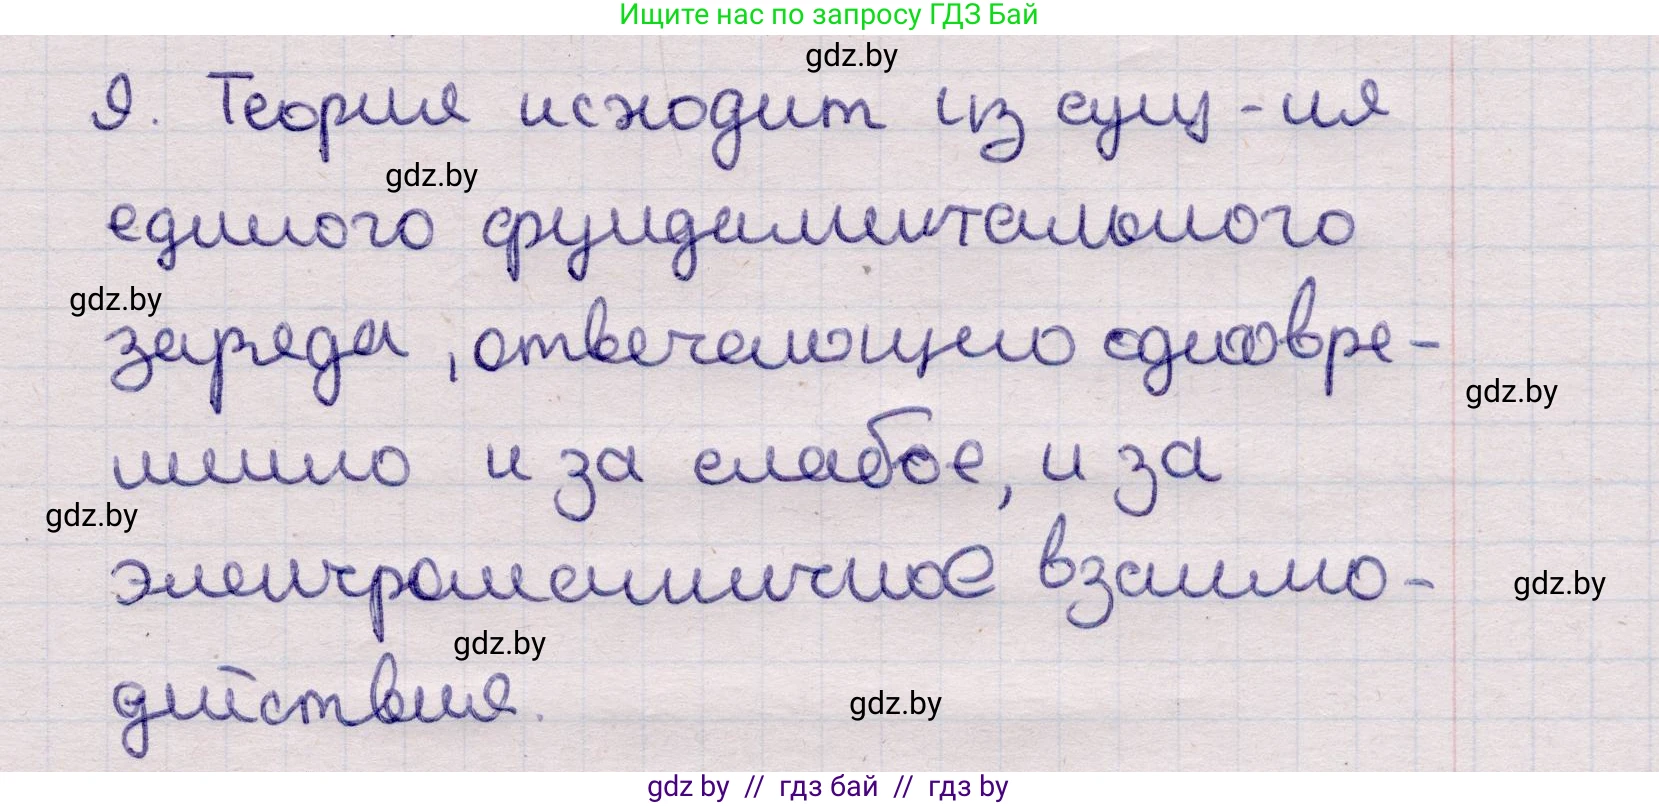 Ищите нас по запросу ГДЗ Бай
gdz.by
9. Теория исходит из сущ-ия
gdz.by
единого фундаментального
gdz.by
заряда, отвечающего одновре-
gdz.by
менно и за слабое, и за
gdz.by
электромагнитное взаимо-
gdz.by
gdz.by
действия.
gdz.by
gdz by // гдз бай // гдз by